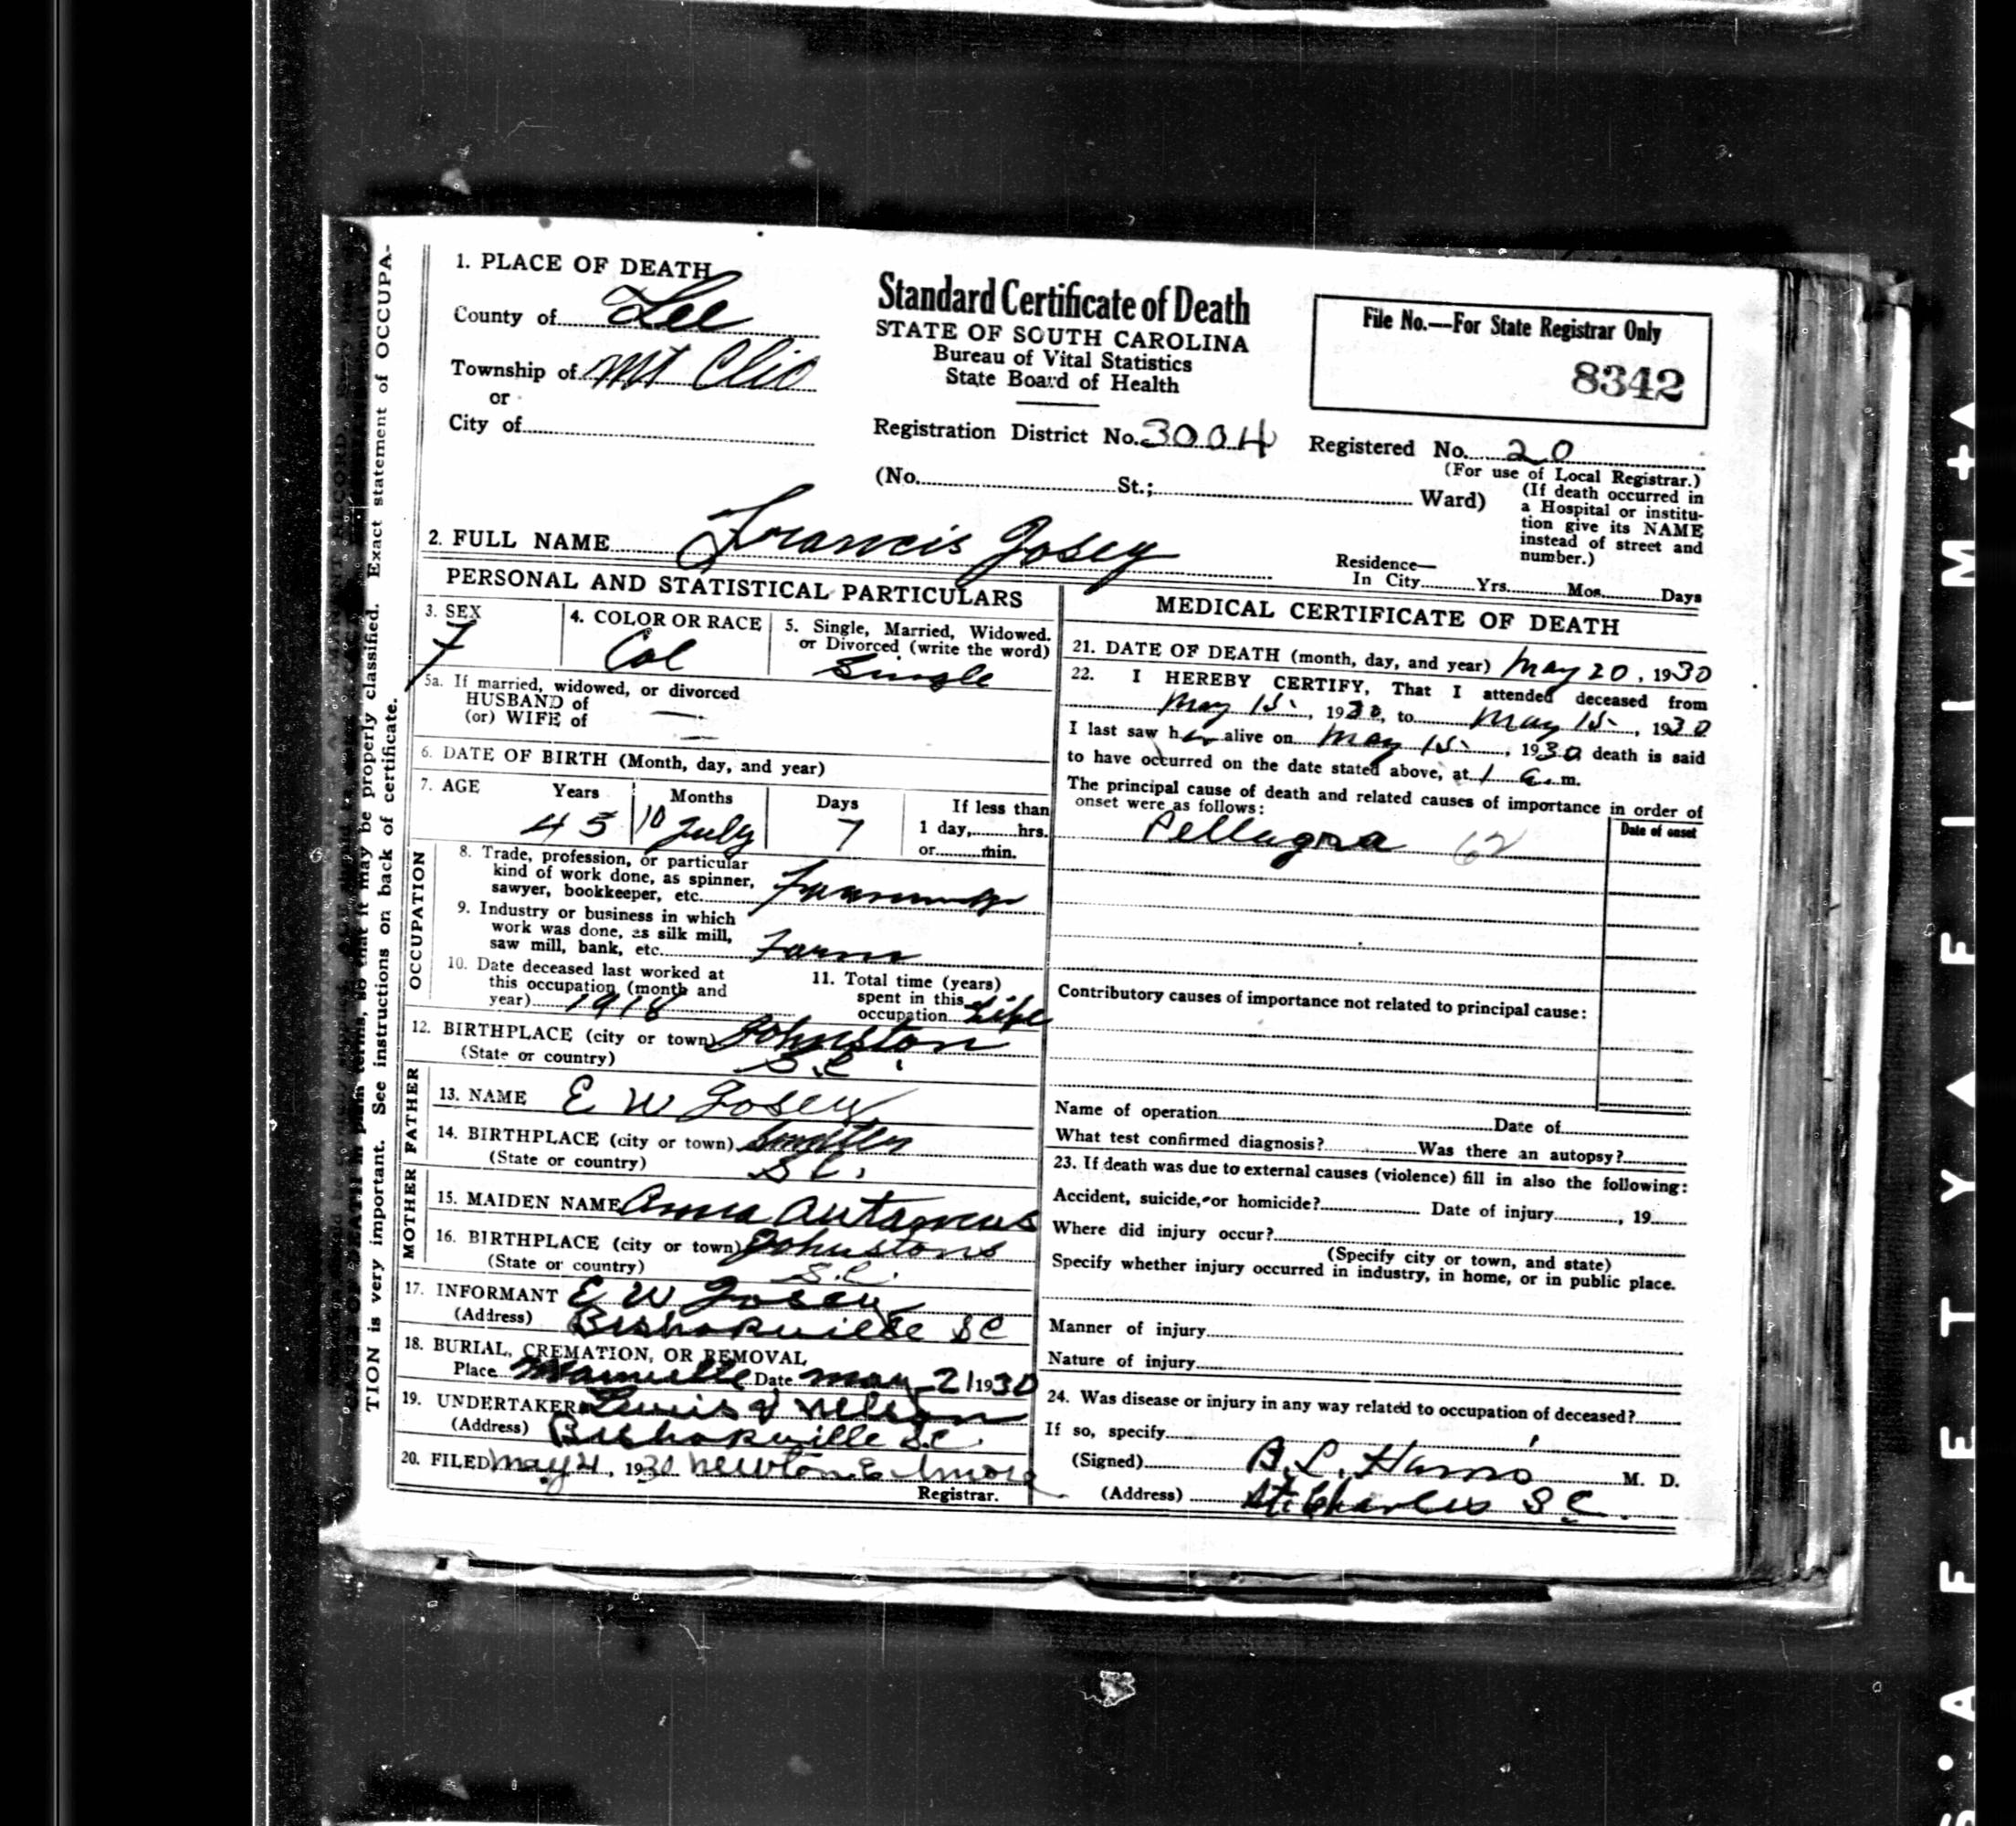 1. PLACE OF DEATH
County of Lee
Township of Mt Clio
or
City of
Standard Certificate of Death
STATE OF SOUTH CAROLINA
Bureau of Vital Statistics
State Board of Health
File No.—For State Registrar Only
8342
Registration District No. 3004 Registered No. 20
(For use of Local Registrar.)
(No. St.; Ward)
(If death occurred in
a Hospital or institu-
tion give its NAME
instead of street and
number.)
2. FULL NAME Francis Josey
Residence—
In City Yrs. Mos. Days
PERSONAL AND STATISTICAL PARTICULARS
3. SEX
F
4. COLOR OR RACE
Col
5. Single, Married, Widowed,
or Divorced (write the word)
Single
5a. If married, widowed, or divorced
HUSBAND of
(or) WIFE of
6. DATE OF BIRTH (Month, day, and year)
7. AGE Years Months Days If less than
45 10 July 7 1 day, hrs.
or min.
OCCUPATION
8. Trade, profession, or particular
kind of work done, as spinner,
sawyer, bookkeeper, etc.
9. Industry or business in which
work was done, as silk mill,
saw mill, bank, etc. Farm
10. Date deceased last worked at
this occupation (month and
year) 1918
11. Total time (years)
spent in this
occupation Life
12. BIRTHPLACE (city or town) Johnston
(State or country) S.C.
FATHER
13. NAME E W Josey
14. BIRTHPLACE (city or town)
(State or country) S C.
MOTHER
15. MAIDEN NAME Anna
16. BIRTHPLACE (city or town) Johnstons
(State or country) S.C.
17. INFORMANT E W Josey
(Address) Bishopville SC
18. BURIAL, CREMATION, OR REMOVAL
Place Manville Date May 21 1930
19. UNDERTAKER
(Address) Bishopville S.C.
20. FILED May , 1930 Newton
Registrar.
MEDICAL CERTIFICATE OF DEATH
21. DATE OF DEATH (month, day, and year) May 20, 1930
22. I HEREBY CERTIFY, That I attended deceased from
May 15, 1930, to May 15, 1930
I last saw her alive on May 15, 1930 death is said
to have occurred on the date stated above, at 1 a.m.
The principal cause of death and related causes of importance in order of
onset were as follows:
Date of onset
Pellagra 62
Contributory causes of importance not related to principal cause:
Name of operation Date of
What test confirmed diagnosis? Was there an autopsy?
23. If death was due to external causes (violence) fill in also the following:
Accident, suicide, or homicide? Date of injury , 19
Where did injury occur?
(Specify city or town, and state)
Specify whether injury occurred in industry, in home, or in public place.
Manner of injury
Nature of injury
24. Was disease or injury in any way related to occupation of deceased?
If so, specify
(Signed) M. D.
(Address) St. Charles S.C.
Exact statement of OCCUPA-
so that it may be properly classified.
TION is very important. See instructions on back of certificate.
SAFETY FILM